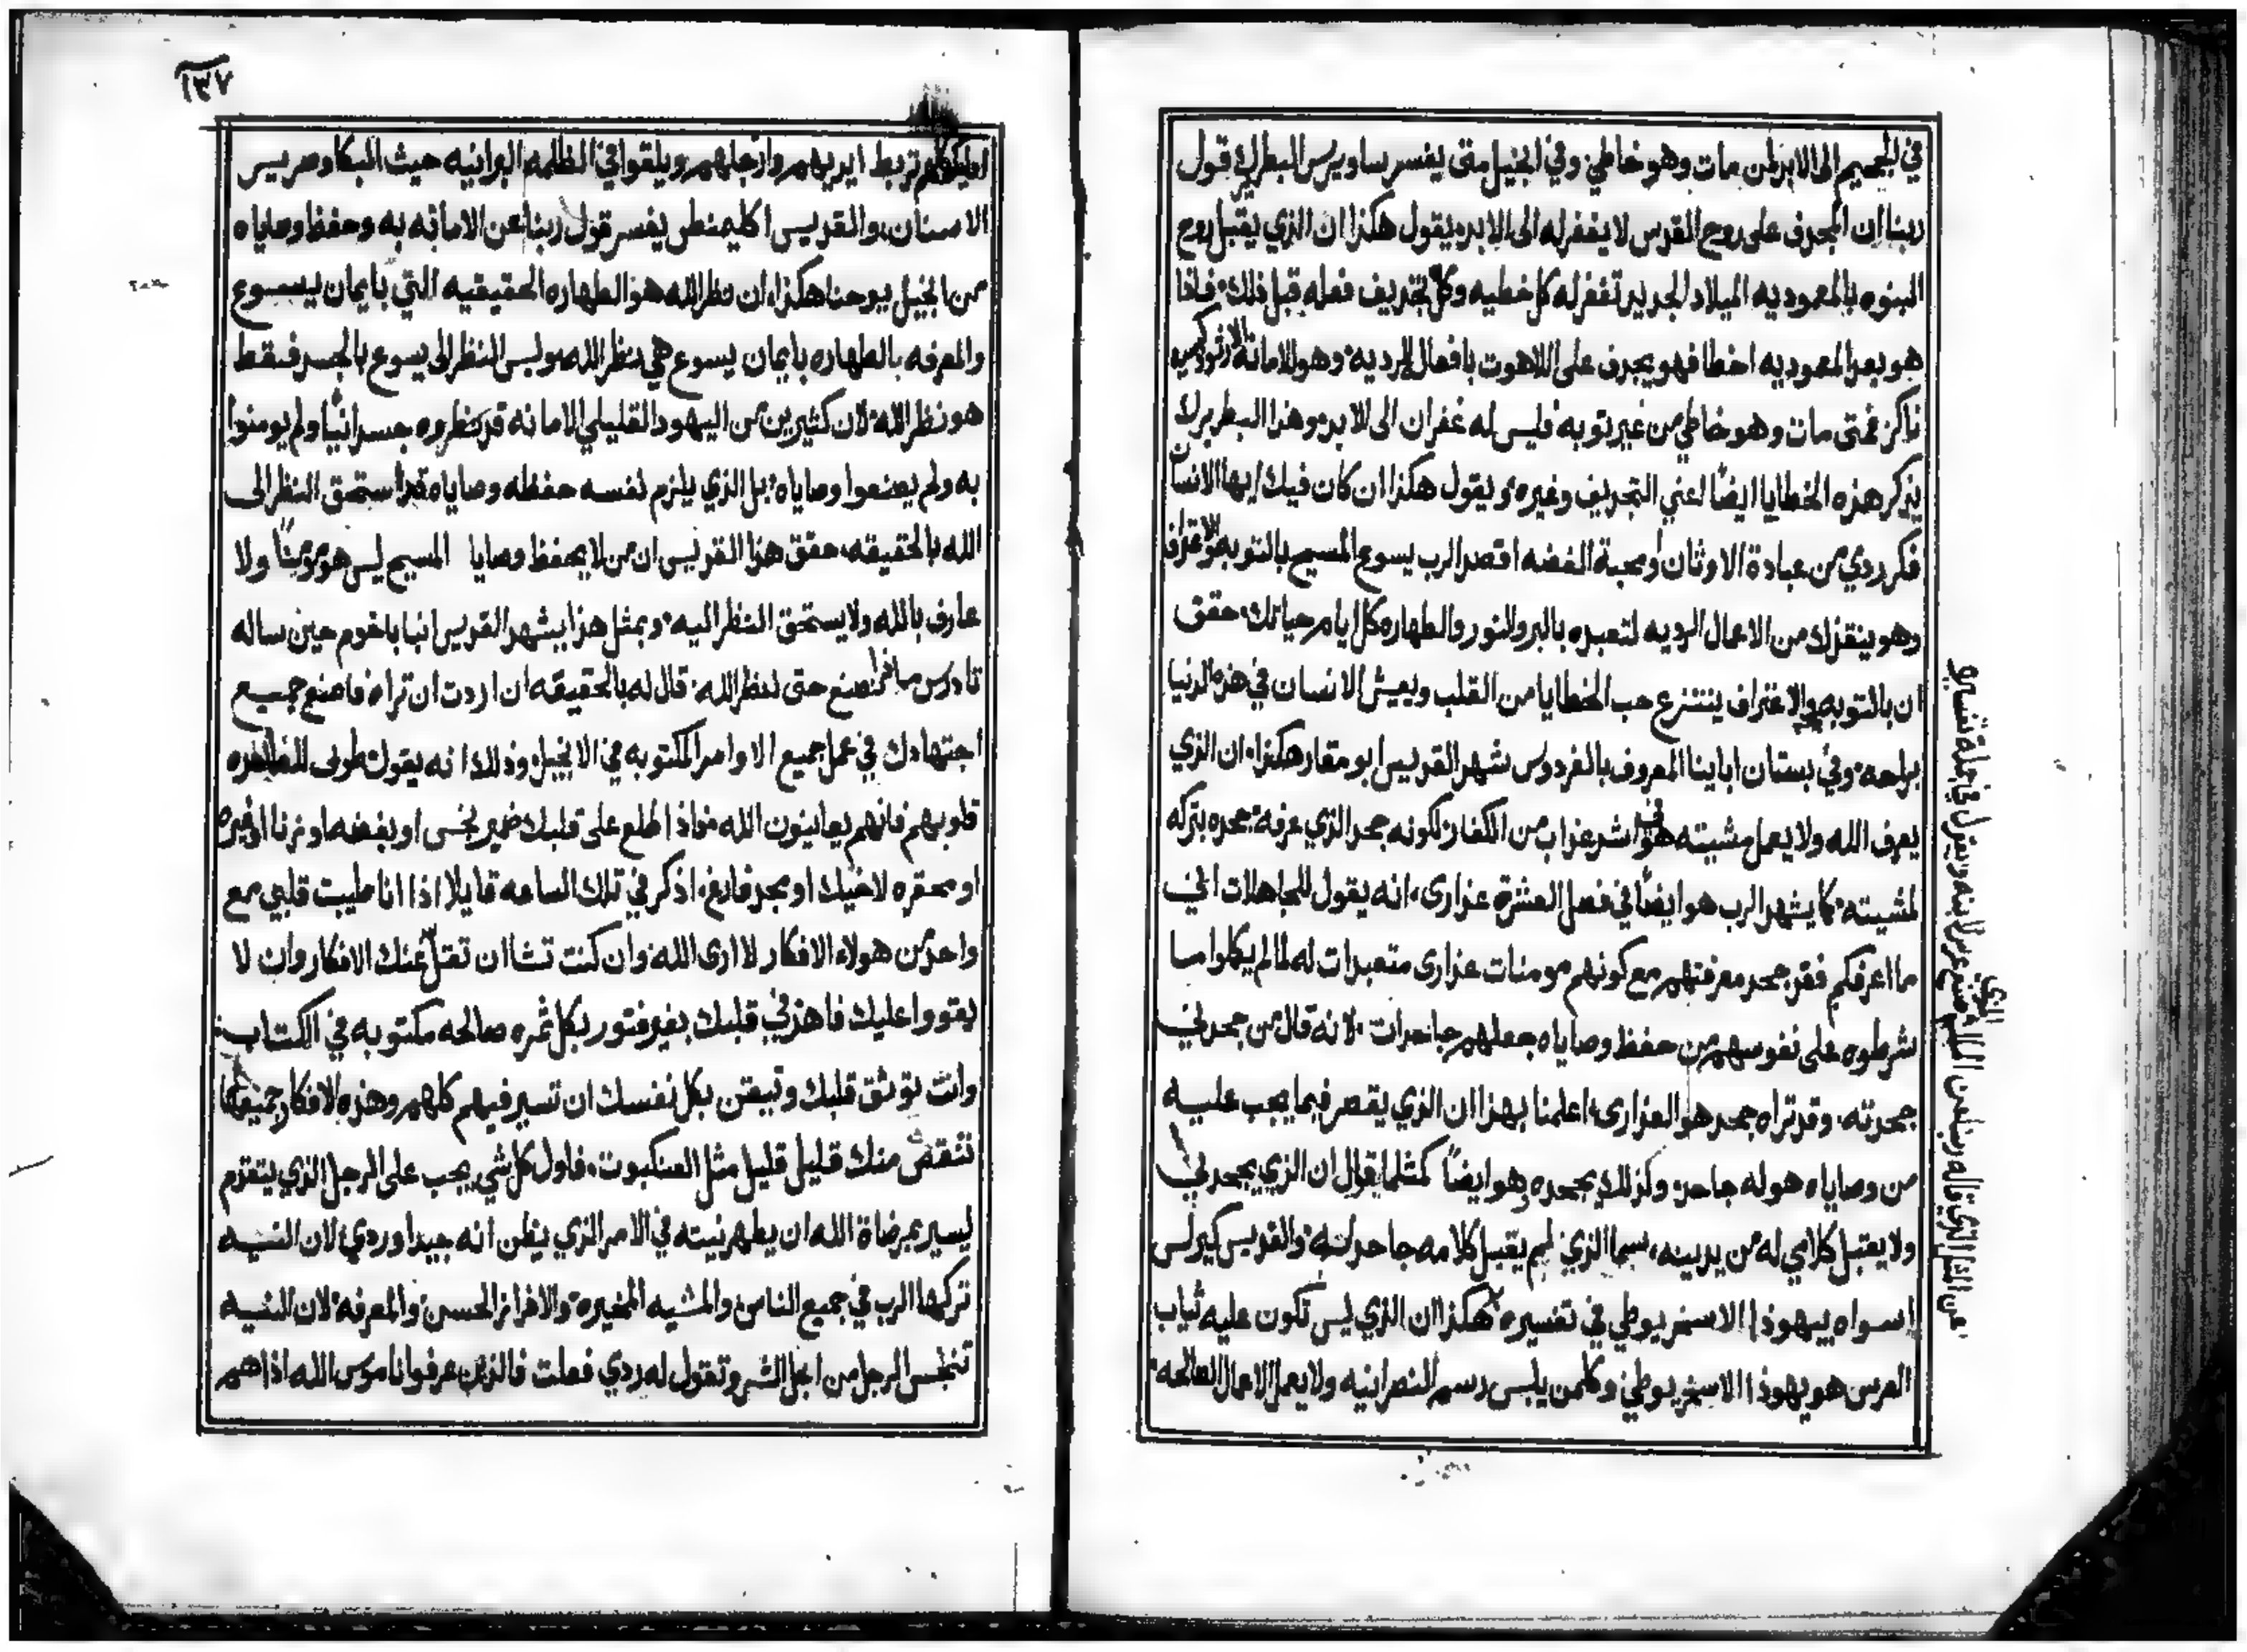 في الجحيم الى الابد لمن مات وهو خاطي وفي انجيل متى يفسر ساويرس البطريرك قول
ربنا ان المجدف على روح القدس لا يغفر له الى الابد ويقول هكذا ان الذي يقبل روح
البنوه بالمعوديه الميلاد الجديد تغفر له كل خطيه وكل تجديف فعله قبل ذلك فاذا
هو بعد المعموديه اخطا فهو يجدف على اللاهوت بافعال الرديه وهو للامانة الارثودكسيه
ناكر فمتى مات وهو خاطي من غير توبه فليس له غفران الى الابد وهذا البطريرك
يذكر هذه الخطايا ايضًا اعني التجديف وغيره ويقول هكذا ان كان فيك ايها الانسان
فكر ردي من عبادة الاوثان او محبة الفضه اقصد الرب يسوع المسيح بالتوبه والاعتراف
وهو ينقذك من الاعمال الرديه لتعبده بالبر والنور والطهاره كل ايام حياتك حقق
ان بالتوبه والاعتراف ينتزع حب الخطايا من القلب ويعيش الانسان في هذه الدنيا
براحه وفي بستان اباينا المعروف بالفردوس شهد القديس ابو مقار هكذا ان الذي
يعرف الله ولا يعمل مشيته هو في اشر عذاب من الكفار لكونه جحد الذي عرفه جحده بتركه
لمشيته كما يشهد الرب هو ايضًا في فصل العشرة عذارى انه يقول للجاهلات اني
ما اعرفكم فقد جحد معرفتهم مع كونهم مومنات عذارى متعبدات له لما لم يكملوا ما
شرطوه على نفوسهم من حفظ وصاياه جعلهم جاحدات لانه قال من جحدني
جحدته وقد تراه جحد هوالعذارى اعلمنا بهذا ان الذي يقصر فيما يجب عليه
من وصاياه هو له جاحد وكذلك يجحده وهو ايضًا كمثلما يقول ان الذي يجحدني
ولا يقبل كلامي له من يدينه سما الذي لم يقبل كلامه جاحد له والقديس كيرلس
اسواه بيهوذا الاسخريوطي في تفسيره هكذا ان الذي ليس تكون عليه ثياب
العرس هو يهوذا الاسخريوطي وكلمن يلبس رسم النصرانيه ولا يعمل الاعمال الصالحه
اوليكهم تربط ايديهم وارجلهم ويلقوا في الظلمه البرانيه حيث البكا وصرير
الاسنان والقديس اكليمنطس يفسر قول ربنا عن الامانه به وحفظ وصاياه
من انجيل يوحنا هكذا ان نظر الله هو الطهاره الحقيقيه التي بايمان ليسوع
والمعرفه بالطهاره بايمان يسوع هي نظر الله وليس النظر الى يسوع بالجسد فقط
هو نظر الله لان كثيرين من اليهود القليلي الامانه قد نظروه جسدانيًا ولم يومنوا
به ولم يصنعوا وصاياه بل الذي يلزم نفسه حفظه وصاياه قد استحق النظر الى
الله بالحقيقه حقق هذا القديس ان من لا يحفظ وصايا المسيح ليس هو مومنًا ولا
عارف بالله ولا يستحق النظر اليه وبمثل هذا يشهد القديس انبا باخوم حين ساله
تادرس ماذا نصنع حتى ننظر الله قال له بالحقيقه ان اردت ان تراه فاصنع جميع
اجتهادك في عمل جميع الاوامر المكتوبه في الانجيل وذلك انه يقول طوبى للطاهره
قلوبهم فانهم يعاينون الله فاذا طلع على قلبك ضمير نجس او بغضه او زنا او غيره
او محقره لاخيك او مجد فارغ اذكر في تلك الساعه قايلا اذا انا طيبت قلبي مع
واحد من هولاء الافكار لا ارى الله وان كنت تشا ان تقتل عنك الافكار وان لا
يقووا عليك فاهذ في قلبك بغير فتور بكل ثمره صالحه مكتوبه في الكتاب
وانت توثق قلبك وتيقن بكل نفسك ان تسير فيهم كلهم وهذه الافكار جميعها
تنقض منك قليل قليل مثل العنكبوت فاول كل شي يجب على الرجل الذي يتقدم
ليسير بمرضاة الله ان يطهر نيته في الامر الذي يظن انه جيد او ردي لان النيه
تركها الرب في جميع الناس والمشيه المخيره والافراز الحسن والمعرفه لان النيه
تنخس الرجل من اجل الشر وتقول له ردي فعلت فالذين عرفوا ناموس الله اذا هم
١٣٧